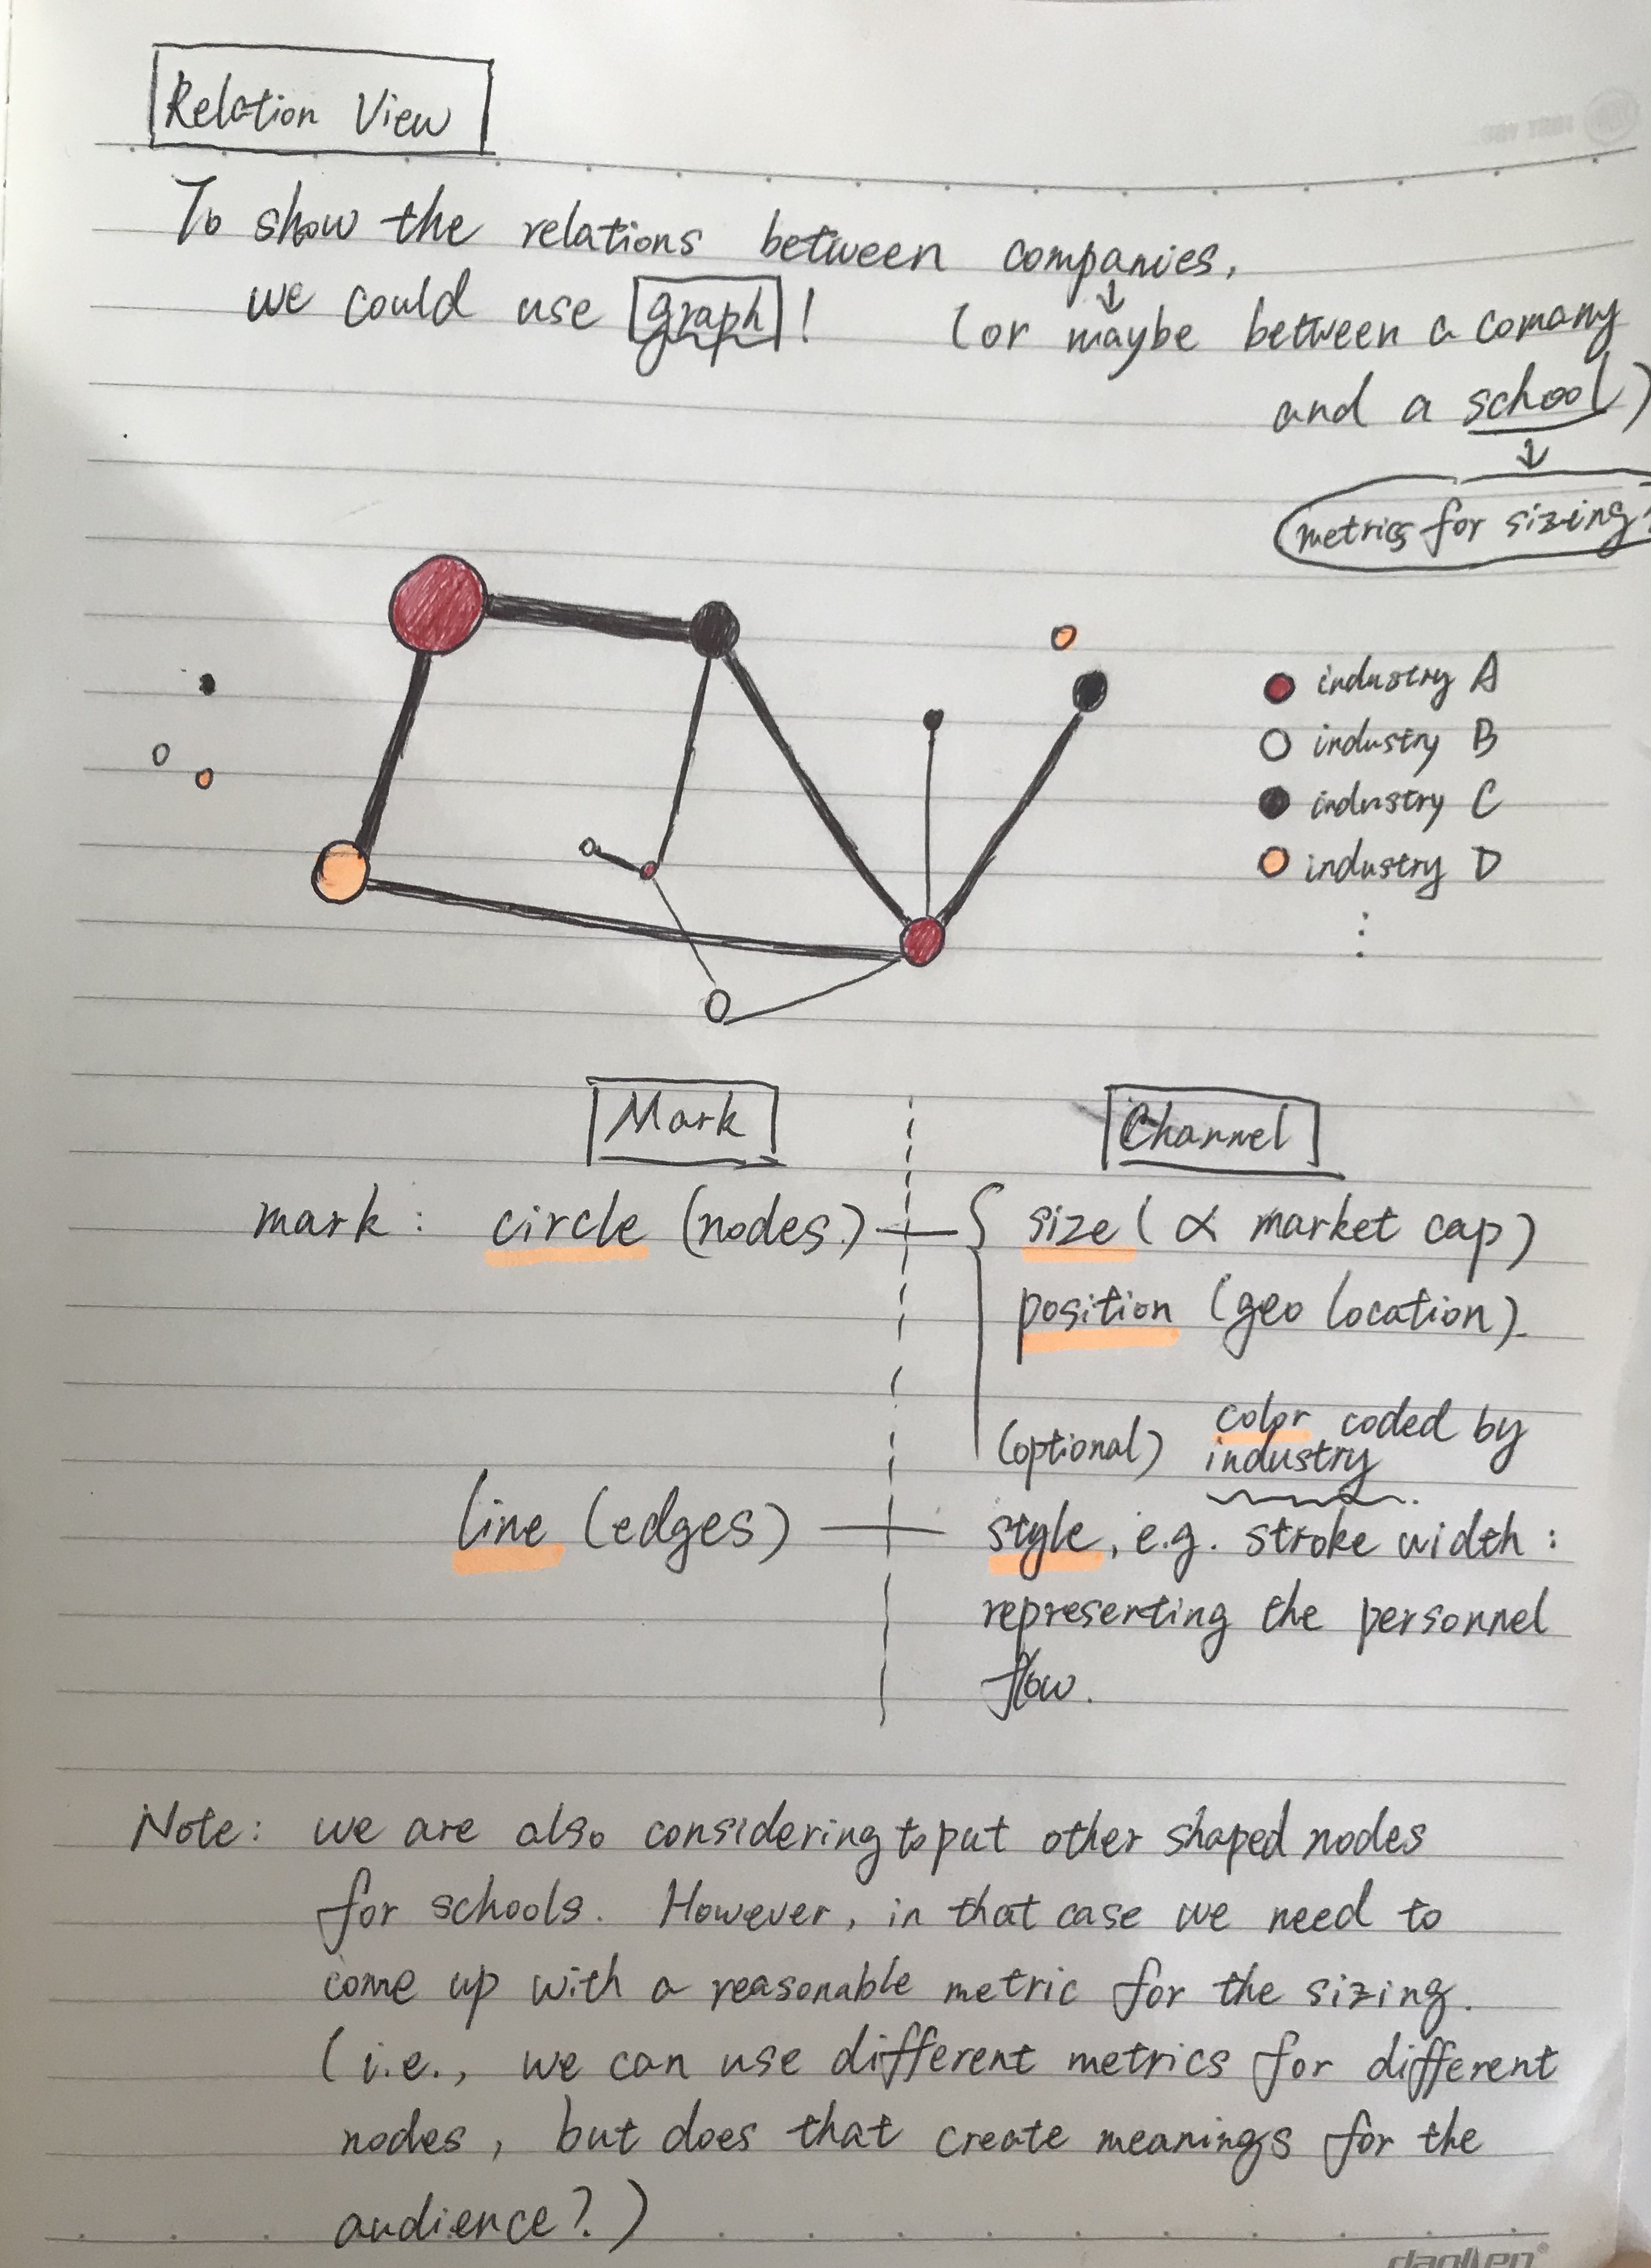 Relation View
To show the relations between companies,
we could use graph! (or maybe between a comany
and a school)
↓
metrics for sizing?
industry A
industry B
industry C
industry D
⋮
Mark Channel
mark: circle (nodes) { size (∝ market cap)
position (geo location).
(optional) color coded by
industry.
line (edges) style, e.g. stroke width:
representing the personnel
flow.
Note: we are also considering to put other shaped nodes
for schools. However, in that case we need to
come up with a reasonable metric for the sizing.
(i.e., we can use different metrics for different
nodes, but does that create meanings for the
audience?)